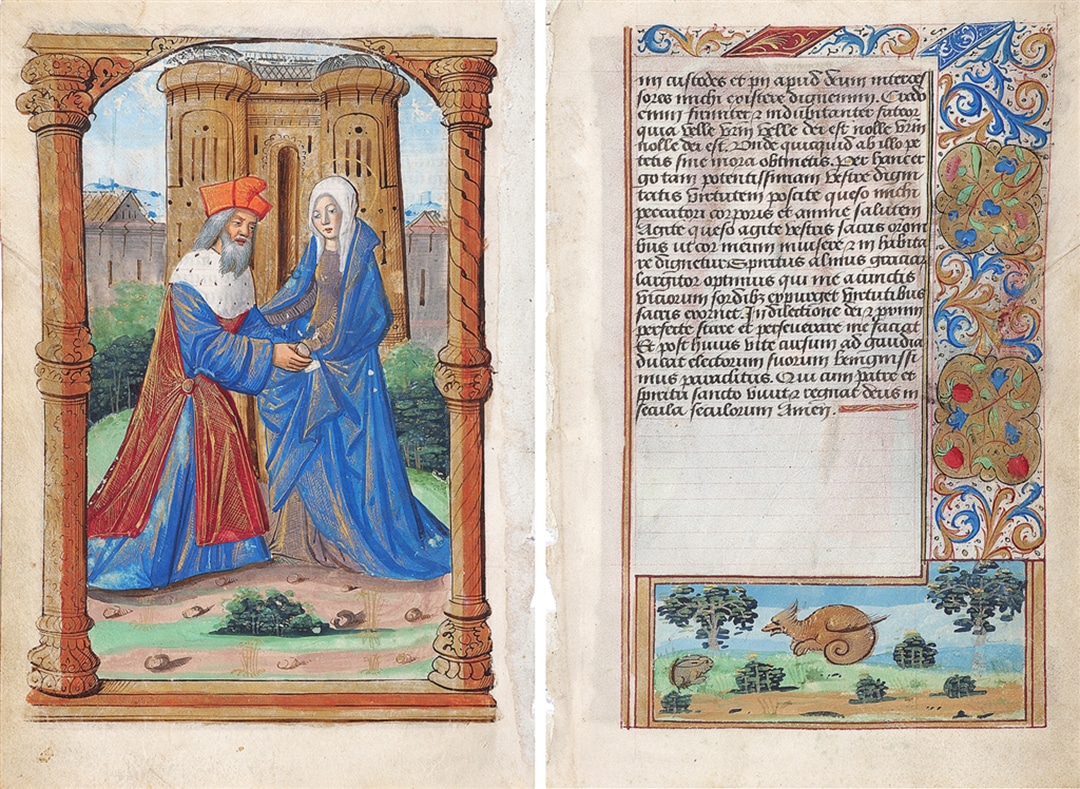 mi custodes et pii apud deum interces
sores michi existere dignemini. Credo
enim firmiter ⁊ indubitanter fateor
quia velle vrm velle dei est nolle vrm
nolle dei est. Unde quicquid ab illo pe
tetis sine mora obtinetis. Per hanc er
go tam potentissimam vestre digni
tatis virtutem posate queso michi
peccatori corporis et anime salutem
Agite queso agite vestris sacris oroni
bus ut cor meum invisere ⁊ inhabita
re dignetur Spiritus almus graciar
largitor optimus qui me a cunctis
viciorum sordibz expurget virtutibus
sacris exornet. In dilectione dei ⁊ primi
perfecte stare et perseverare me faciat
Et post huius vite cursum ad gaudia
ducat electorum suorum benignissi
mus paraclitus. Qui cum patre et
spiritu sancto vivit ⁊ regnat deus in
secula seculorum Amen.